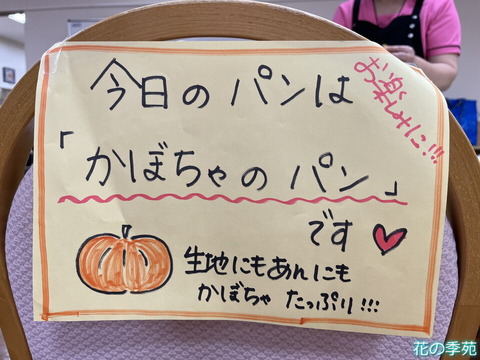 今日のパンは
お楽しみに!!!
「かぼちゃのパン」
です
生地にもあんにも
かぼちゃ たっぷり!!!
花の季苑